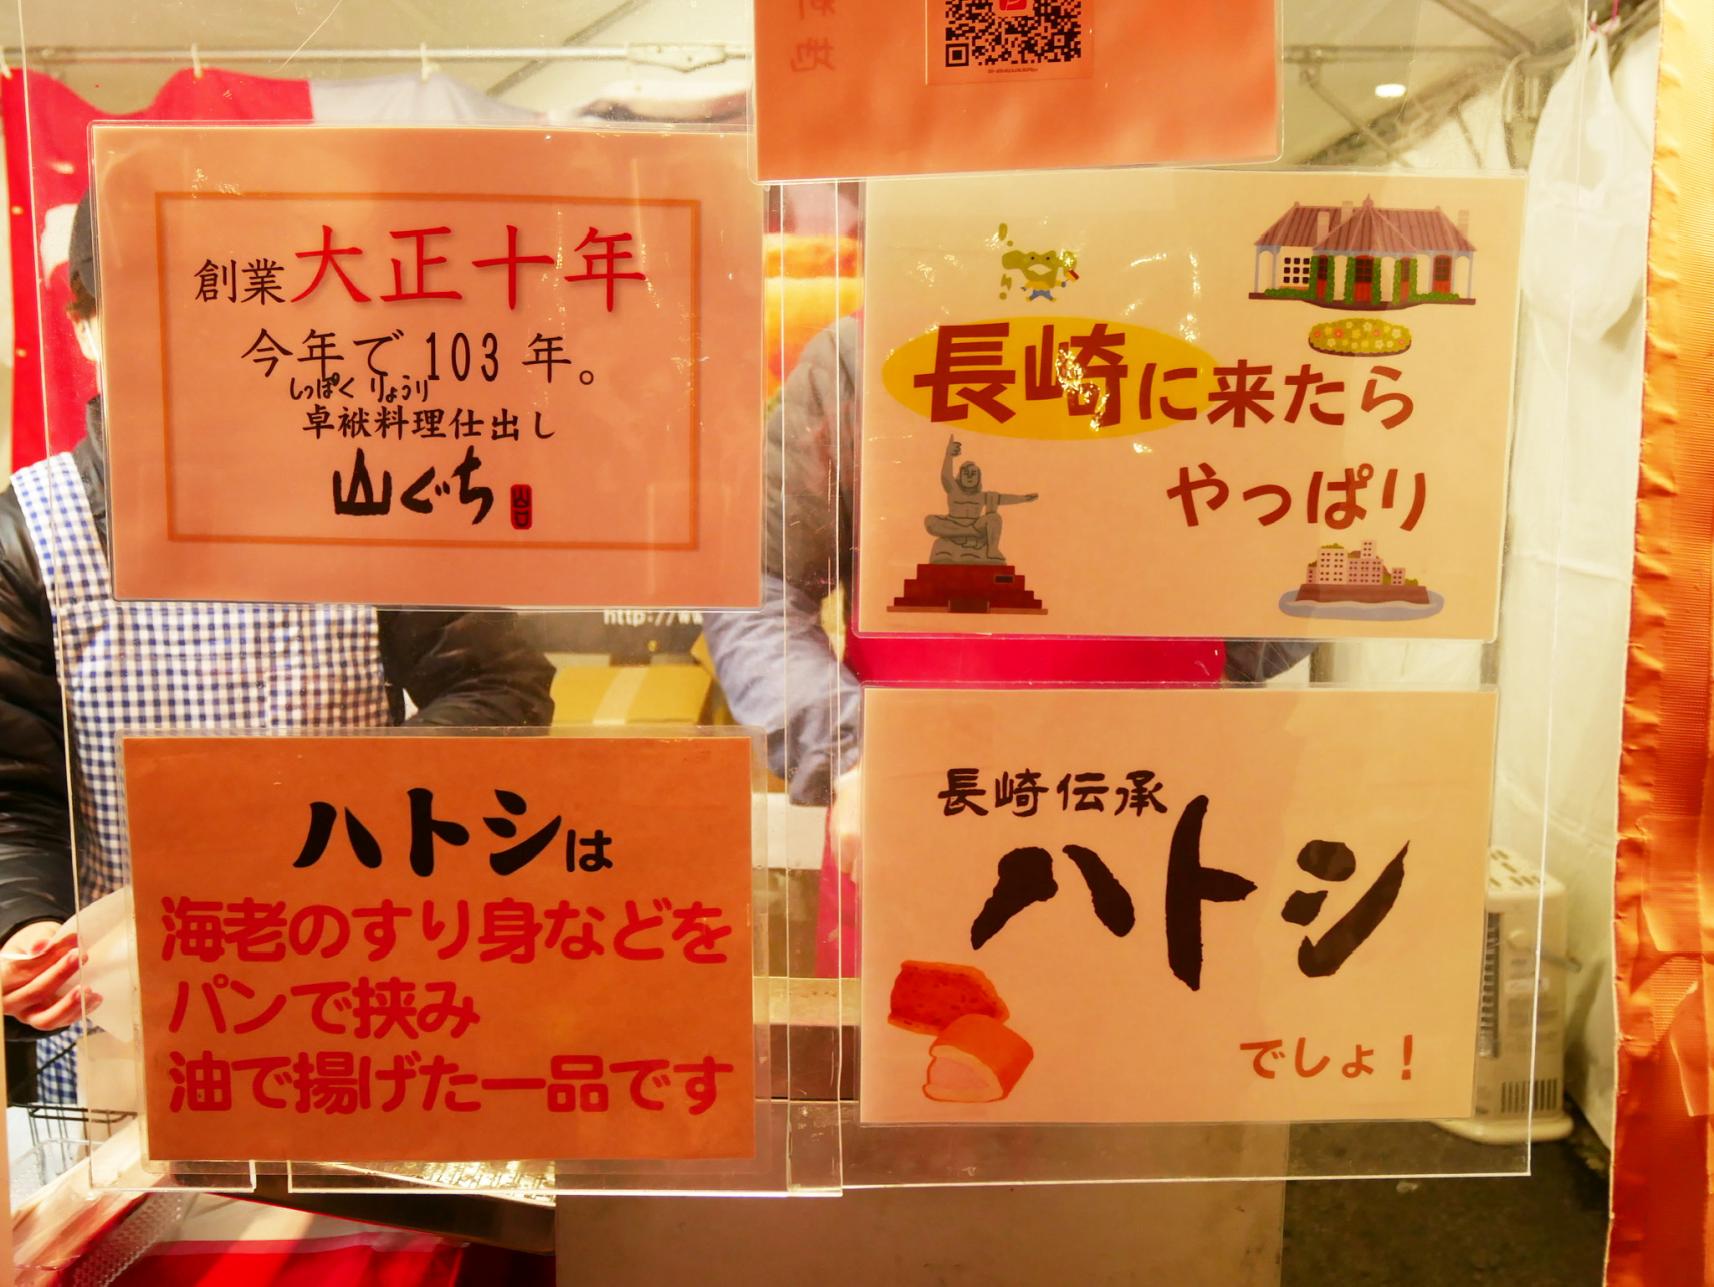 創業大正十年
今年で103年。
しっぽく りょうり
卓袱料理仕出し
山ぐち
長崎に来たら
やっぱり
http://w
ハトシは
海老のすり身などを
パンで挟み
油で揚げた一品です
長崎伝承
ハトシ
でしょ!